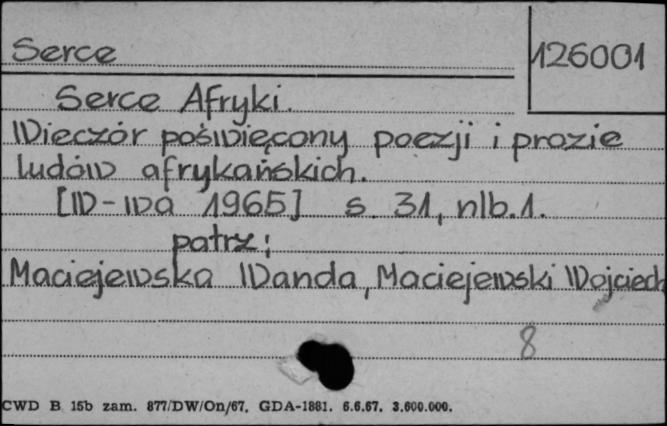 Serce
126001
Serce Afryki.
Wieczór poświęcony poezji i prozie
ludów afrykańskich.
[W-wa 1965] s. 31, nlb.1.
patrz:
Maciejewska Wanda, Maciejewski Wojciech
8
CWD B 15b zam. 877/DW/On/67. GDA-1881. 6.6.67. 3.600.000.